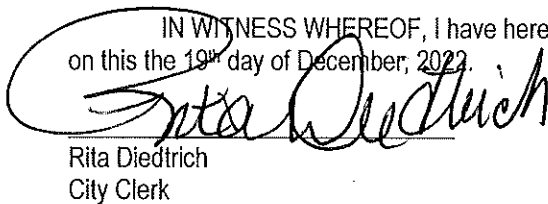 IN WITNESS WHEREOF, I have here
on this the 19th day of December, 2022.
Rita Diedtrich
Rita Diedtrich
City Clerk